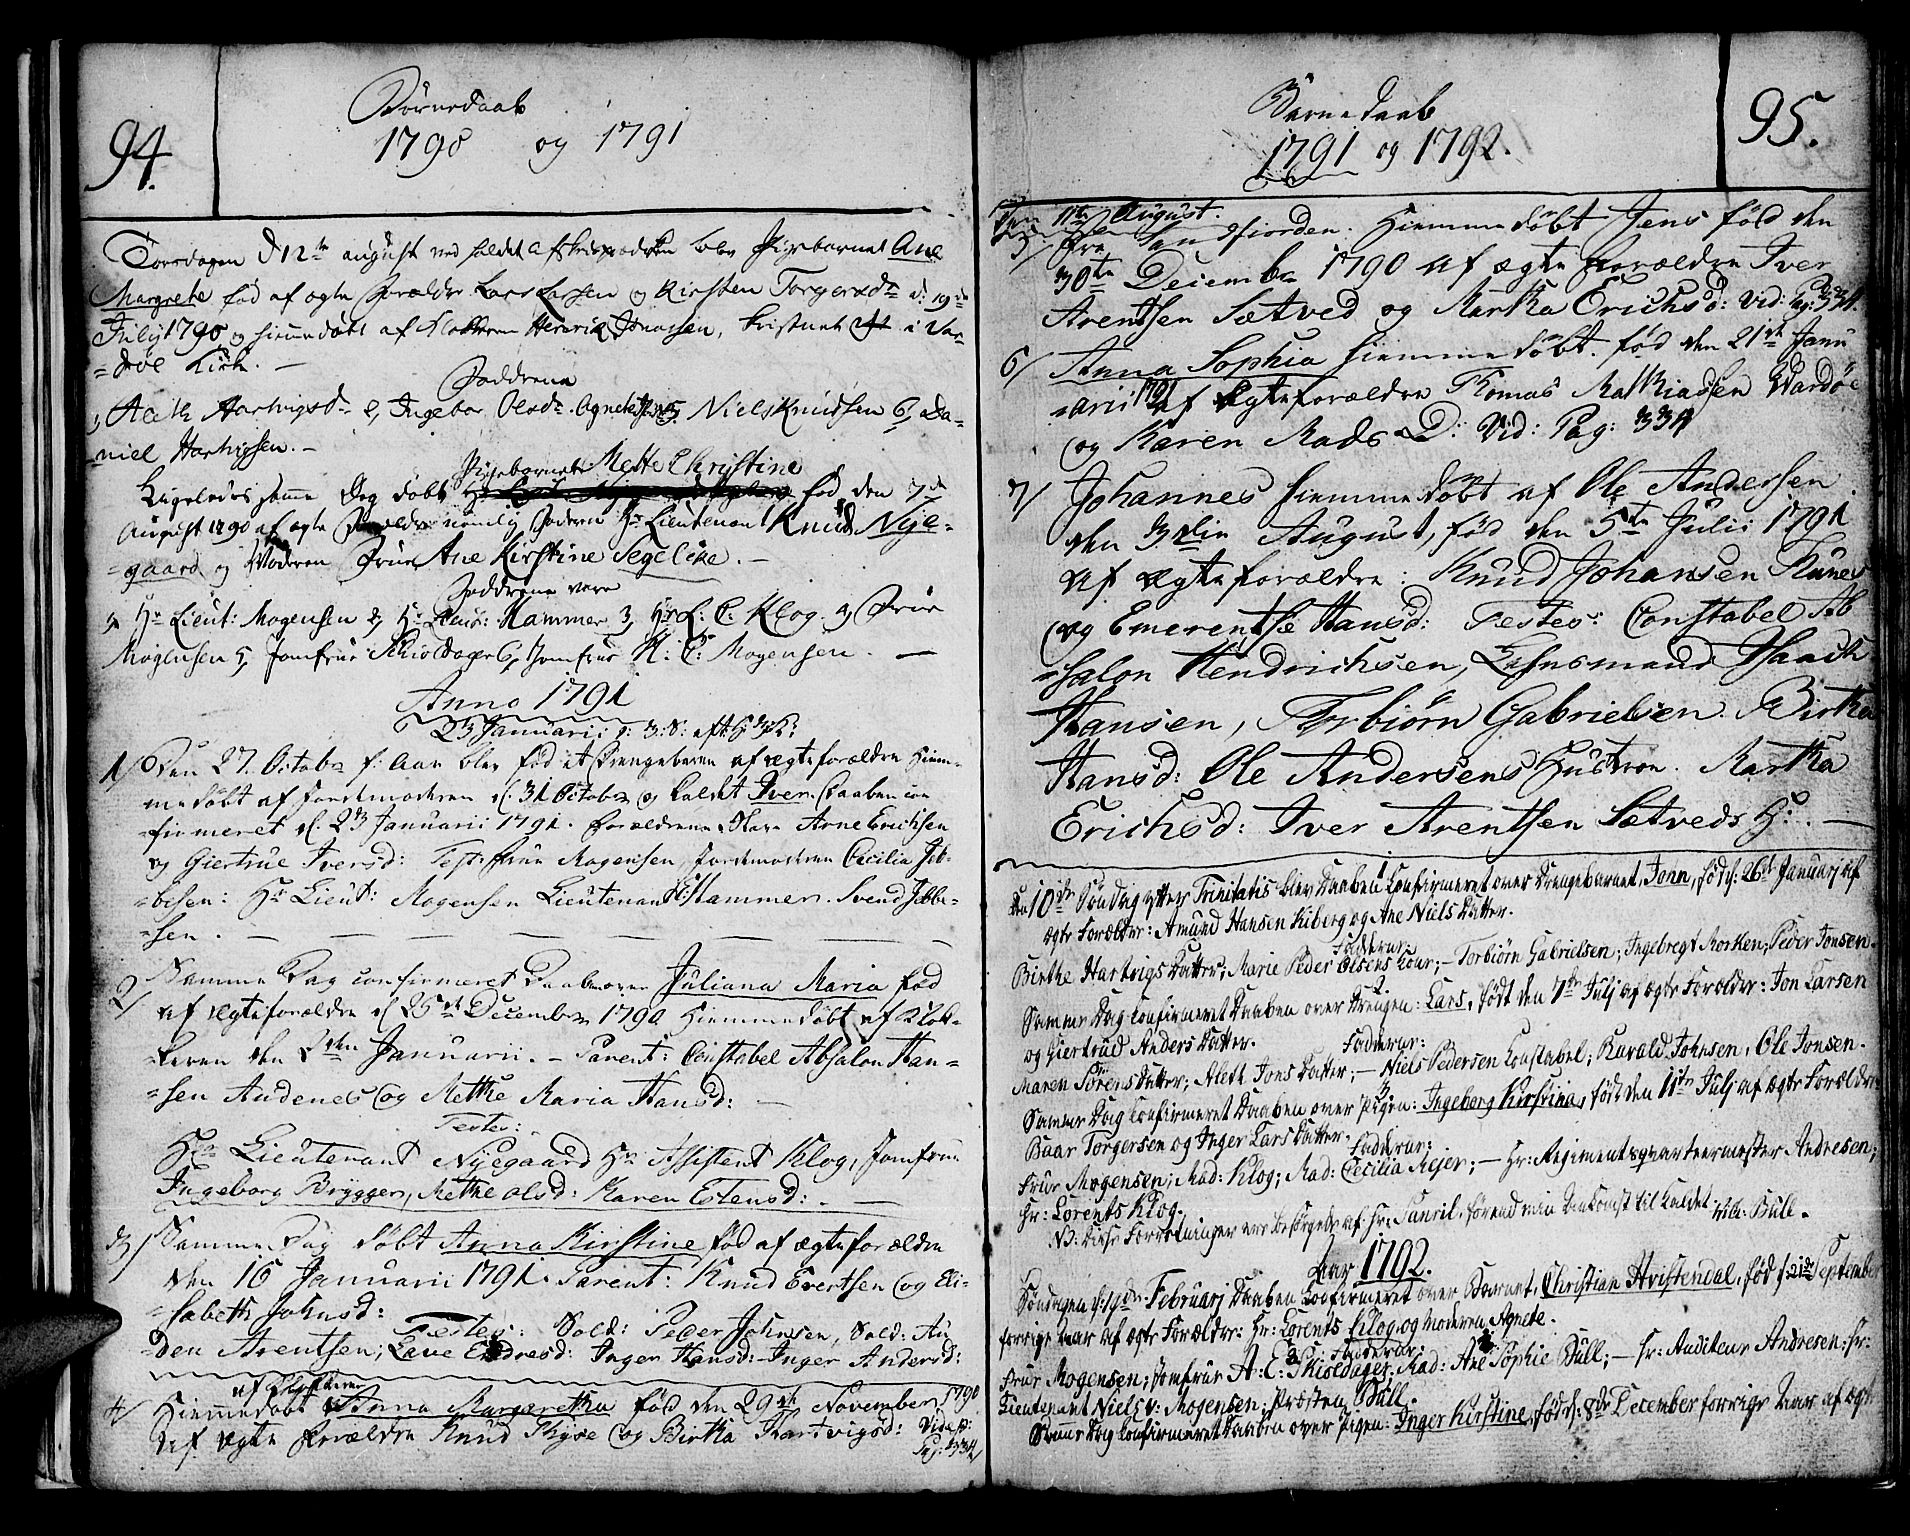 94.
Börnedaab
1790 og 1791
Torsdagen d 12te august ved holdet blev Pigebarnet Ane
Margrete fød af ægte Forældre Lars Larsen og Kirsten Torgersdr d: 19de
July 1790, og hiemmedöbt af Klokkeren Henrik Jonassen, Kristnet i Var-
=døe Kirke. —
Faddrene
1, Aleth Hartvigsdr 2, Ingebor Olsdr. Agnete 5, Niels Knudsen 6, Da-
niel Hartvigsen. —
Pigebarnet Mette Christine
Ligeledes samme Dag døbt fød den 7de
August 1790 af ægte Forældre nemlig Faderen Hr Lieutenant Knud Nye-
=gaard og Moderen Frue Ane Kirstine Segelcke. —
Faddrene vare
1, Hr Lieut: Mogensen 2, Hr Lieut: Hammer 3, Hr L: C. Klog. 4, Frue
Mogensen 5, Jomfrue Schioldager 6, Jomfrue K. C: Mogensen. —
Anno 1791
23 Januarii : 3: S: eft: H: 3 K:
1/ Den 27. Octobr f: Aar blev fød et Drengebarn af ægteforældre Hiem-
medöbt af Jordemoderen d. 31 October og kaldet Iver. Daaben con
firmeret d. 23 Januarii 1791. forældrene Arne Erichsen
og Giertrue Iversd: Test: frue Mogensen, Jordemoderen Cecilia Jeb-
=besen: Hr Lieut: Mogensen Lieutenant Hammer. Svend Jebbe-
=sen. —
2/ Samme Dag confirmeret Daaben over Juliana Maria fød
af ægteforældre d 25de December 1790 Hiemmedöbt af Klok-
keren den Januarii. — Parent: Constabel Absalon Han-
=sen Audenes og Methe Maria Hansd: —
Testes:
Hr Lieutenant Nyegaard Hr Assistent Klog, Jomfrue
Ingeborg Brygger, Methe Olsd: Karen Estensd: —
3/ Samme Dag döbt Anna Kirstine fød af ægteforældre
den 16 Januarii 1791 Parent: Knud Evertsen og Eli-
=sabeth Johnsd:
Testes: Sold: Peder Johnsen, Sold: Au
den Arentsen; Lave Endresd: Inger Hansd. Inger Andersd:
af Klokkeren
4/ Hiemmedöbt Anna Margretha fød den 29de November 1790
af ægte forældre Knud Thyse og Birtha Hartvigsd: Vide
Pag: 334
95.
Barnedaab
1791 og 1792.
Den 11te August.
5/ fra Sandfiorden. Hiemmedöbt Jens fød den
30te Decembr 1790 af ægte forældre Iver
Arentsen Sætved og Martha Erichsd: Vid: Pag: 334.
6/ Anna Sophia hiemmedöbt. fød den 21de Janu
arii 1791 af ægteforældre Thomas Mathiassen Wardöe
og Karen Mads D: Vid: Pag: 334
7/ Johannes hiemmedöbt af Ole Andersen
den 3die August, fød den 5te Julii 1791
af ægteforældre: Knud Johansen Kunes
og Emerentse Hansd: Testes: Constabel Ab
=salon Hendrichsen, Lehnsmand Isaach
Hansen, Torbiörn Gabrielsen. Birtha
Hansd: Ole Andersens Hustroe. Martha
Erichsd: Iver Arentsen Sætveds H: —
1.
Den 10de Söndag efter Trinitatis blev Daaben Confirmeret over Drengebarnet, John, föd d: 26de Januarj af
ægte Forældre: Amund Hansen Kiberg og Ane Niels Datter.
Fadderar:
Birthe Hartvigs Datter; Marie Peder Olsens Kone; — Torbiörn Gabrielsen; Ingebregt Morken; Peder Jonsen.
2.
Samme Dag Confirmeret Daaben over Drengen: Lars, födt den 7de Julj af ægte Forældre: Jon Larsen
og Giertrud Anders Datter.
Fadderar:
Maren Sörens Datter; Aleth Jons Datter; — Niels Pedersen Constabel; Harald Johnsen, Ole Jonsen.
3
Samme Dag Confirmeret Daaben over Pigen: Ingeborg Kirstina, födt den 11te Julj af ægte Forældre:
Baar Torgersen og Inger Lars Datter.
Fadderar:
Frue Mogensen; Mad: Klog; Mad: Cecilia Mejer; — Hr: Regimentsqvarteermester Andresen;
Hr: Lorents Klog.
NB: Disse Forretninger ere besörgede af Hr: Tanril, förend min Ankomst til Kaldet Bull.
Aar 1792.
Söndagen d: 19de Februarj Daaben Confirmeret over Barnet, Christian Hvistendal, föd d: 21de September
forrige Aar af ægte Forældre: Hr: Lorents Klog og Moderen Agnete.
Fadderar:
Frue Mogensen; Jomfrue A: C: Skioldager; Mad: Ane Sophie Bull; — Hr: Auditeur Andresen; Hr:
Lieutenant Niels v: Mogensen; Præsten Bull.
Samme Dag Confirmeret Daaben over Pigen: Inger Kirstine, föd d: 8de December forrige Aar af ægte